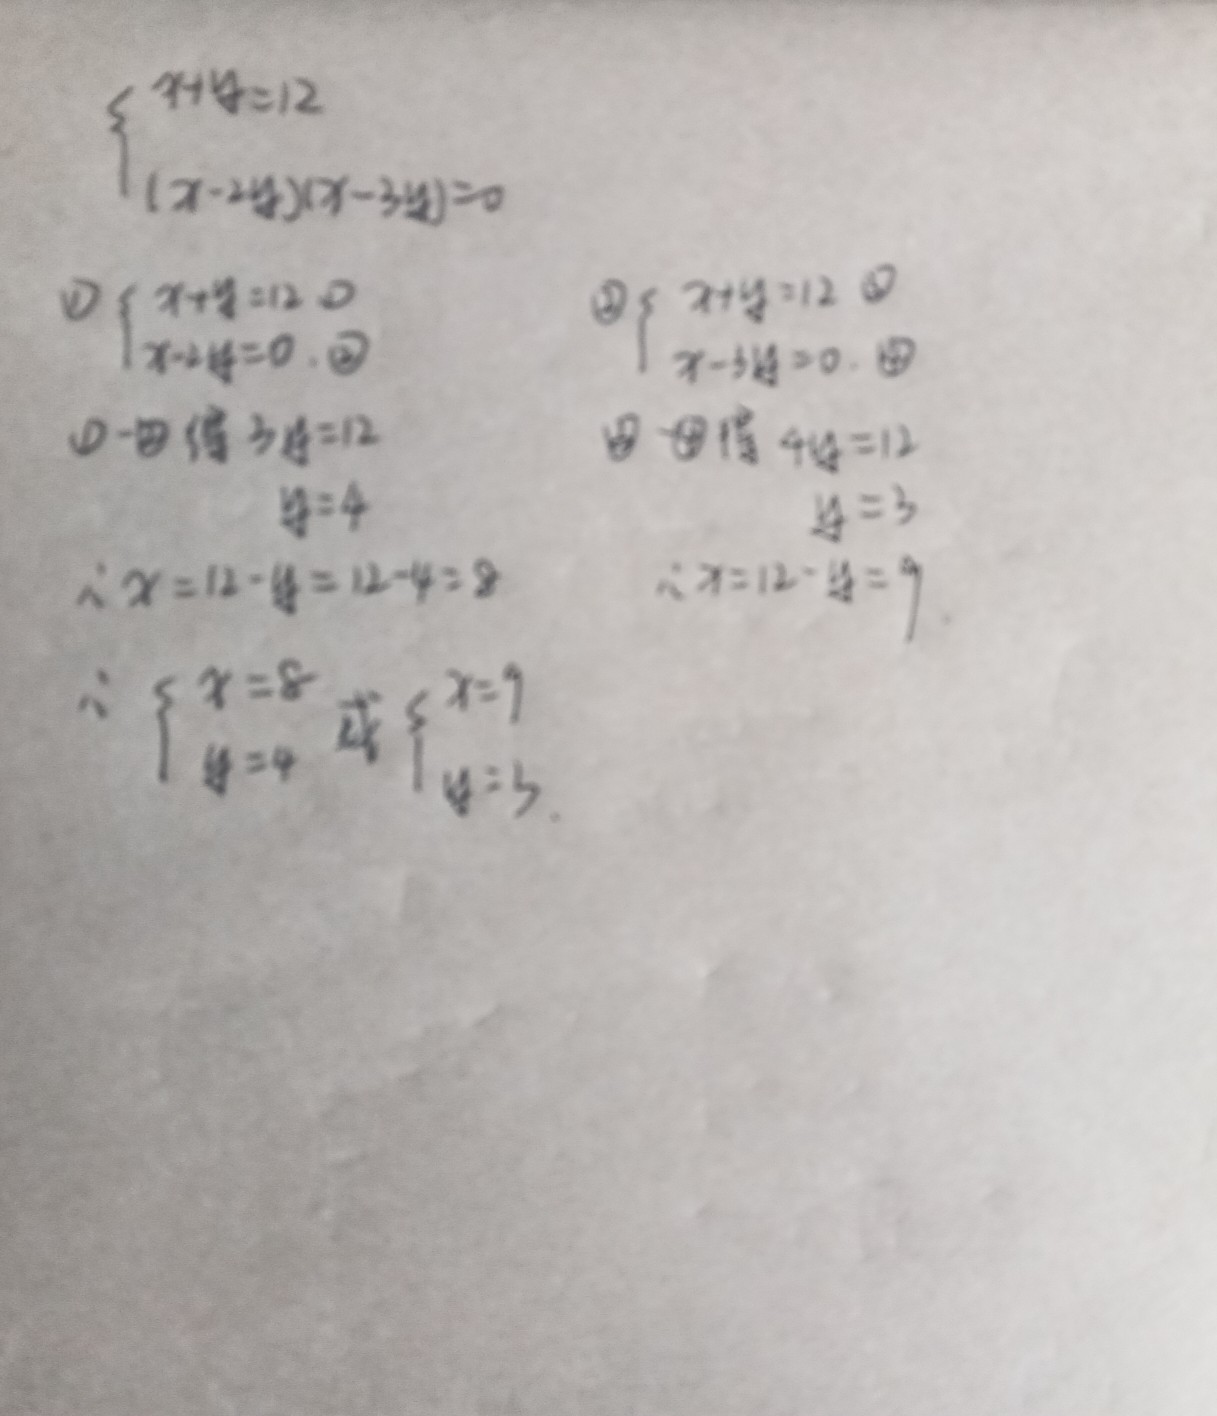 x+y=12
(x-2y)(x-3y)=0
① x+y=12 ①
x-2y=0. ②
①-②得 3y=12
y=4
∴x=12-y=12-4=8
② x+y=12
x-3y=0. ④
-④得 4y=12
y=3
∴x=12-y=9.
∴ x=8 或 x=9
y=4 y=3.